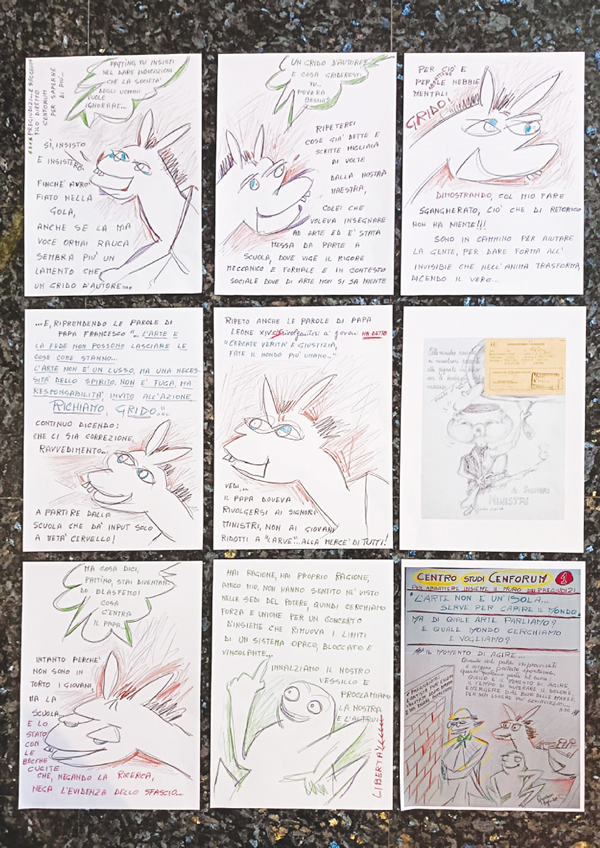 PATTINO TU INSISTI
NEL DARE INDICAZIONI
CHE LA SOCIETA'
DEGLI UOMINI
VUOLE
IGNORARE...
FILO DIRETTO
CENFORUM
PER SAPERNE
DI PIÙ...
SÌ, INSISTO
ED INSISTERÒ
FINCHE' AVRÒ
FIATO NELLA
GOLA,
ANCHE SE LA MIA
VOCE ORMAI RAUCA
SEMBRA PIU' UN
LAMENTO CHE
UN GRIDO D'AUTORE...
UN GRIDO D'AUTORE
E COSA GRIDERESTI
TU...
POVERA
BESTIA?
RIPETEREI
COSE GIA' DETTE E
SCRITTE MIGLIAIA
DI VOLTE
DALLA NOSTRA
MAESTRA,
COLEI CHE
VOLEVA INSEGNARE
AD ARTE ED E' STATA
MESSA DA PARTE A
SCUOLA, DOVE VIGE IL RIGORE
MECCANICO E FORMALE E IN CONTESTO
SOCIALE DOVE DI ARTE NON SI SA NIENTE
PER CIÒ E
PER LE NEBBIE
MENTALI
GRIDO!
DIMOSTRANDO, COL MIO FARE
SGANGHERATO, CIO' CHE DI RETORICO
NON HA NIENTE!!!
SONO IN CAMMINO PER AIUTARE
LA GENTE, PER DARE FORMA ALL'
INVISIBILE CHE NELL'ANIMA TRASFORMA,
DICENDO IL VERO...
...E, RIPRENDENDO LE PAROLE DI
PAPA FRANCESCO "...L'ARTE E
LA FEDE NON POSSONO LASCIARE LE
COSE COME STANNO...
L'ARTE NON E' UN LUSSO, MA UNA NECES-
SITA' DELLO SPIRITO, NON E' FUGA, MA
RESPONSABILITA', INVITO ALL'AZIONE,
RICHIAMO, GRIDO..."...
CONTINUO DICENDO:
CHE CI SIA CORREZIONE,
RAVVEDIMENTO...
A PARTIRE DALLA
SCUOLA CHE DA' INPUT SOLO
A META' CERVELLO!
RIPETO ANCHE LE PAROLE DI PAPA
LEONE XIV CHE rivolgendosi ai giovani HA DETTO
"CERCATE VERITÀ E GIUSTIZIA,
FATE IL MONDO PIU' UMANO..."
VEDI...
IL PAPA DOVEVA
RIVOLGERSI AI SIGNORI
MINISTRI, NON AI GIOVANI
RIDOTTI A "LARVE"...ALLA MERCE' DI TUTTI!
MINISTRI
MA COSA DICI,
PATTINO, STAI DIVENTANDO
DO BLASFEMO!
COSA
C'ENTRA
IL PAPA...
INTANTO PERCHE'
NON SONO IN
TORTO I GIOVANI,
MA LA
SCUOLA
E LO
STATO
CON LE
BOCCHE
CUCITE
CHE, NEGANDO LA RICERCA,
NEGA L'EVIDENZA DELLO SFASCIO...
HAI RAGIONE, HAI PROPRIO RAGIONE,
AMICO MIO, NON HANNO SENTITO NE' VISTO
NELLE SEDI DEL POTERE, QUINDI CERCHIAMO
FORZA E UNIONE PER UN CONCERTO
D'INSIEME CHE RIMUOVA I LIMITI
DI UN SISTEMA OPACO, BLOCCATO E
VINCOLANTE...
INNALZIAMO IL NOSTRO
VESSILLO E
PROCLAMIAMO
LA NOSTRA
E L'ALTRUI
LIBERTÀ
CENTRO STUDI CENFORUM 1
PER ABBATTERE INSIEME IL MURO DEI PREGIUDIZI
"L'ARTE NON E' UN'ISOLA...
SERVE PER CAPIRE IL MONDO"
MA DI QUALE ARTE PARLIAMO?
E QUALE MONDO CERCHIAMO
E VOGLIAMO?
IL MOMENTO DI AGIRE...